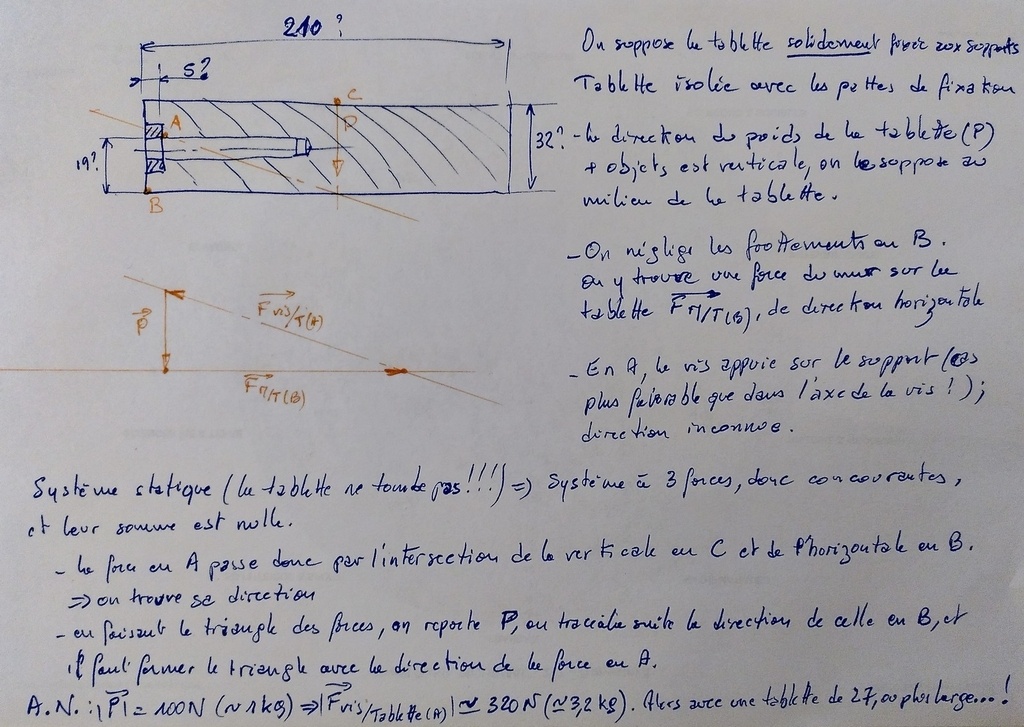 210 ?
5?
A
C
P
19?
32?
B
On suppose la tablette solidement fixée aux supports
Tablette isolée avec les pattes de fixation
- La direction du poids de la tablette (P)
+ objets est verticale, on le suppose au
milieu de la tablette.
- On néglige les frottements en B.
on y trouve une force du mur sur la
tablette F M/T(B), de direction horizontale
- En A, la vis appuie sur le support (cas
plus favorable que dans l'axe de la vis !);
direction inconnue.
P
F vis/T(A)
F M/T(B)
Système statique (la tablette ne tombe pas!!!!) => Système à 3 forces, donc concourantes,
et leur somme est nulle.
- La force en A passe donc par l'intersection de la verticale en C et de l'horizontale en B.
=> on trouve sa direction
- en faisant le triangle des forces, on reporte P, on trace la suite la direction de celle en B, et
il faut fermer le triangle avec la direction de la force en A.
A.N. : |P| = 100N (~ 1 kg) => |F vis/Tablette(A)| ≃ 320 N (≃ 3,2 kg). Alors avec une tablette de 27, ou plus large...!